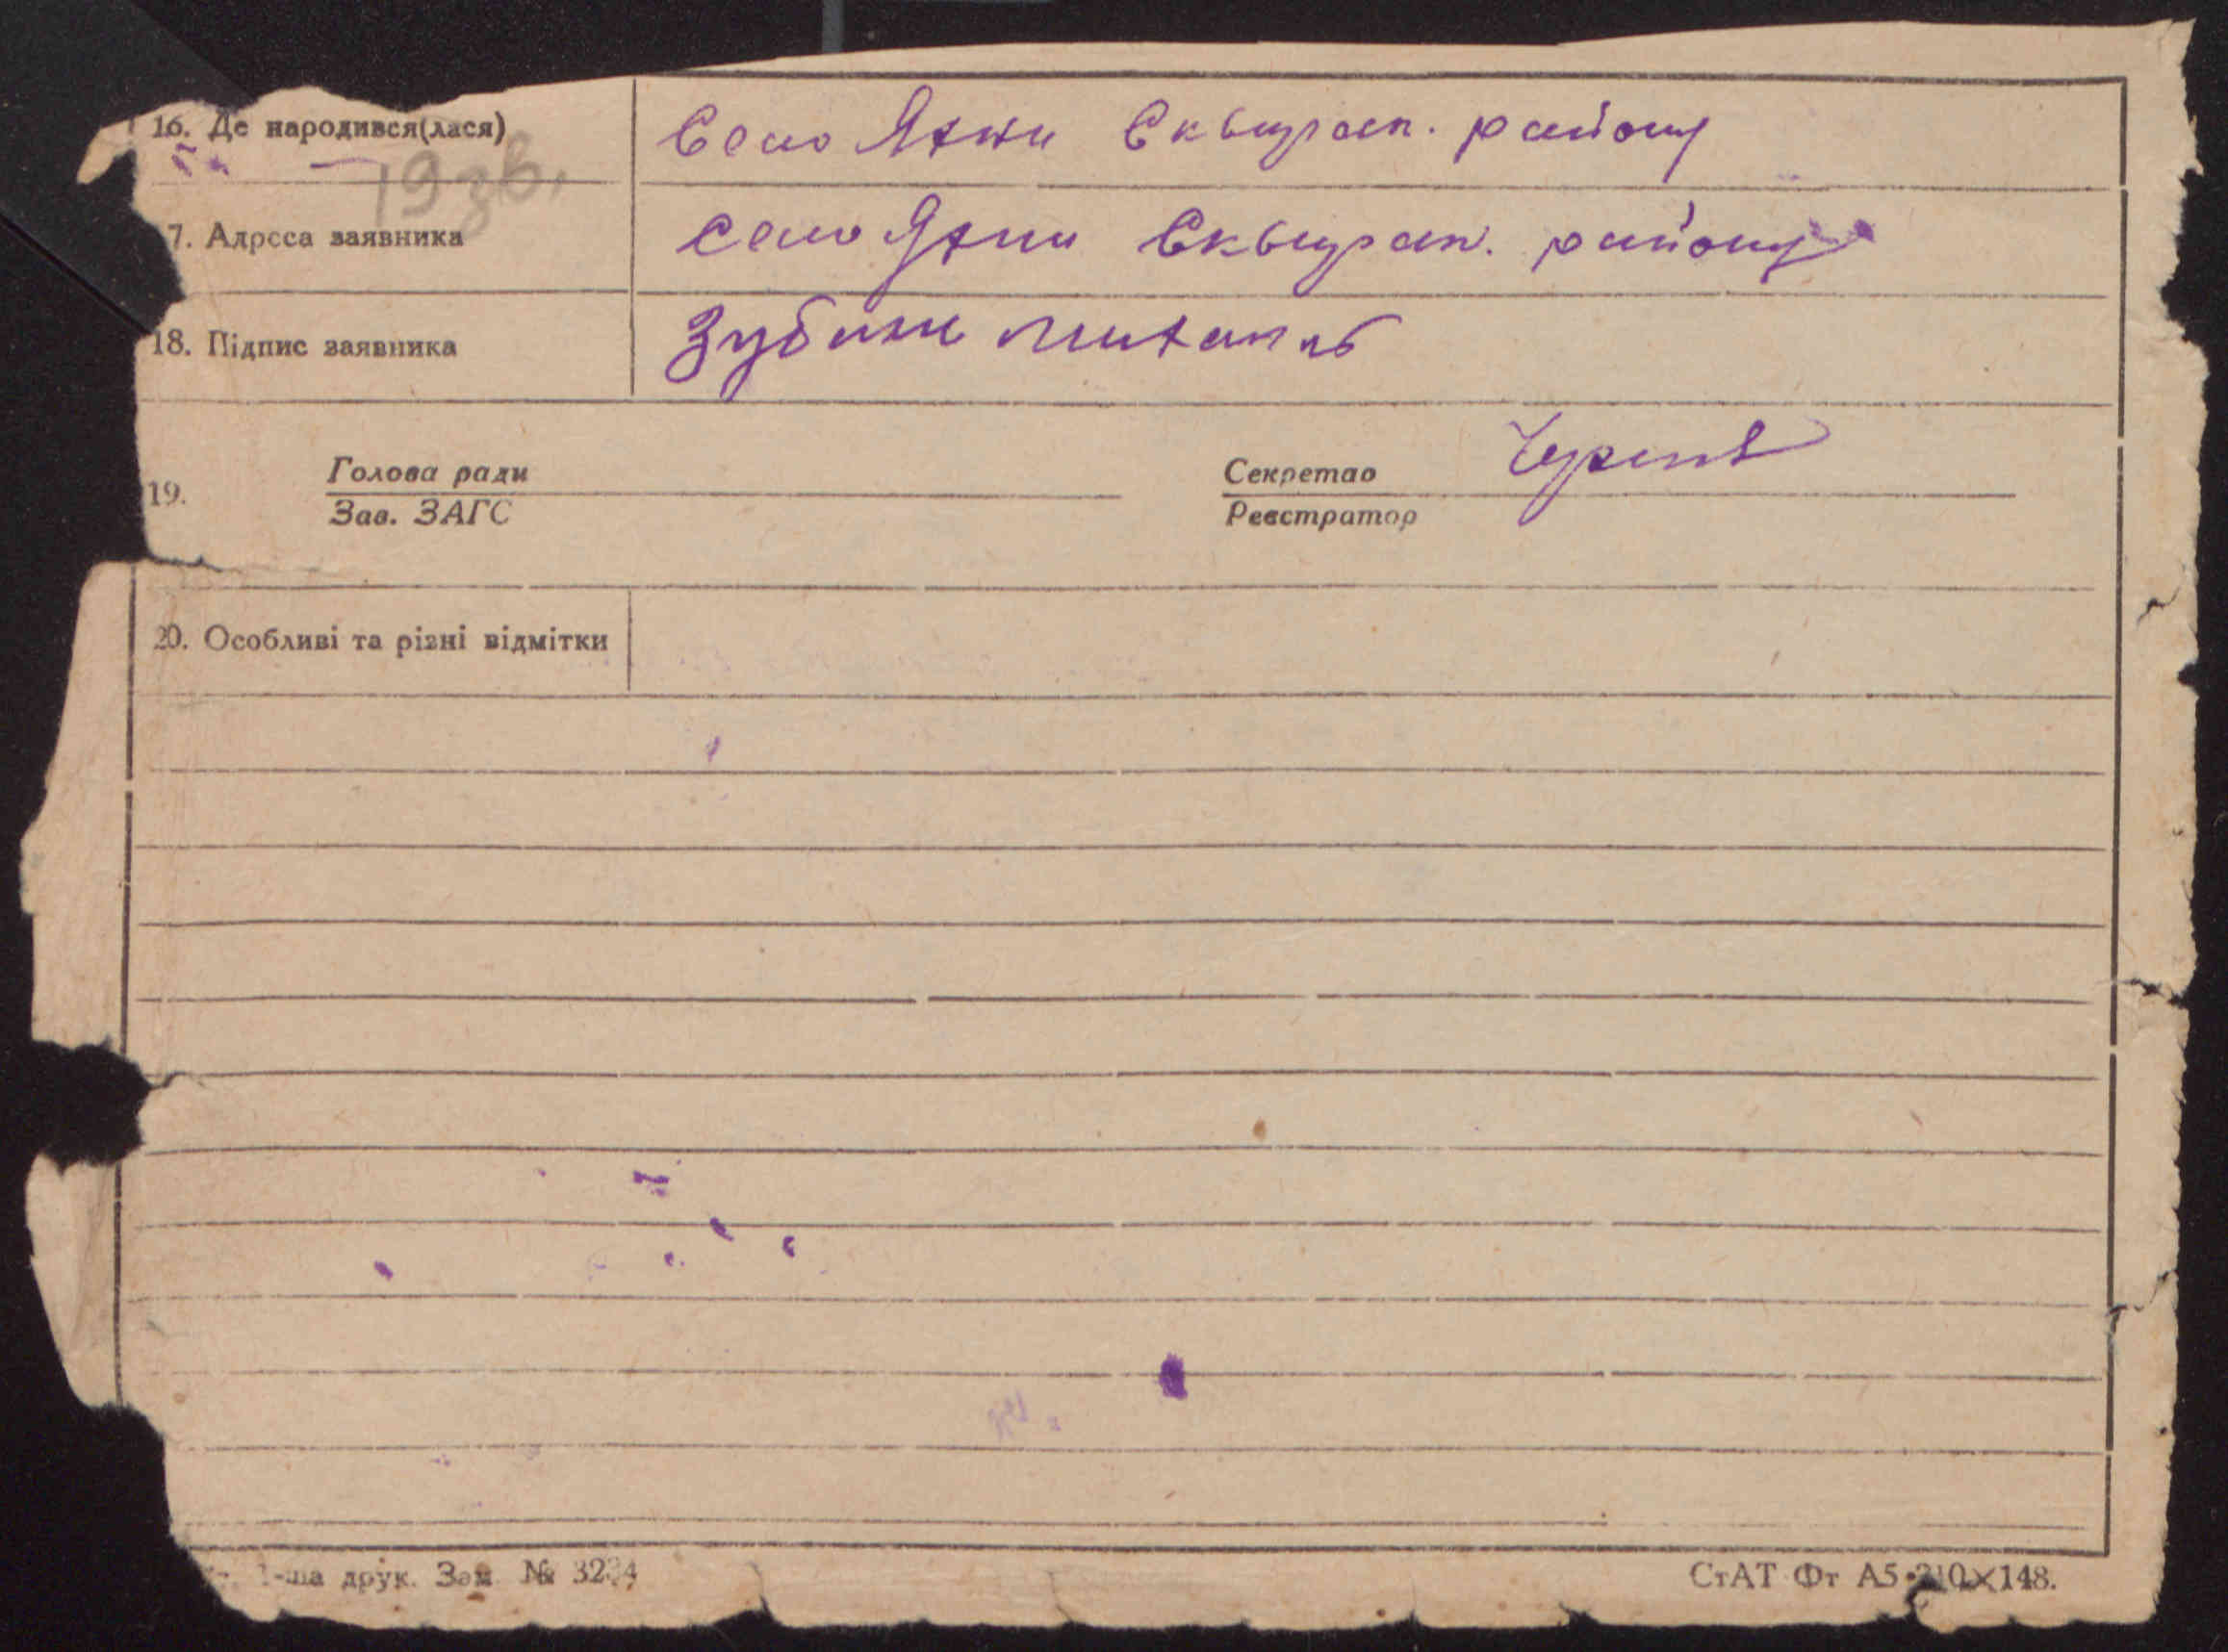 16. Де народився(лася) Село Яхни Сквирськ. району
193в.
7. Адреса заявника село Яхни Сквирськ. району
18. Підпис заявника Зубани
19. Голова ради Секретар
Зав. ЗАГС Реєстратор
20. Особливі та різні відмітки
1-ша друк. Зам. № 3234
СтАТ Фт А5•210×148.